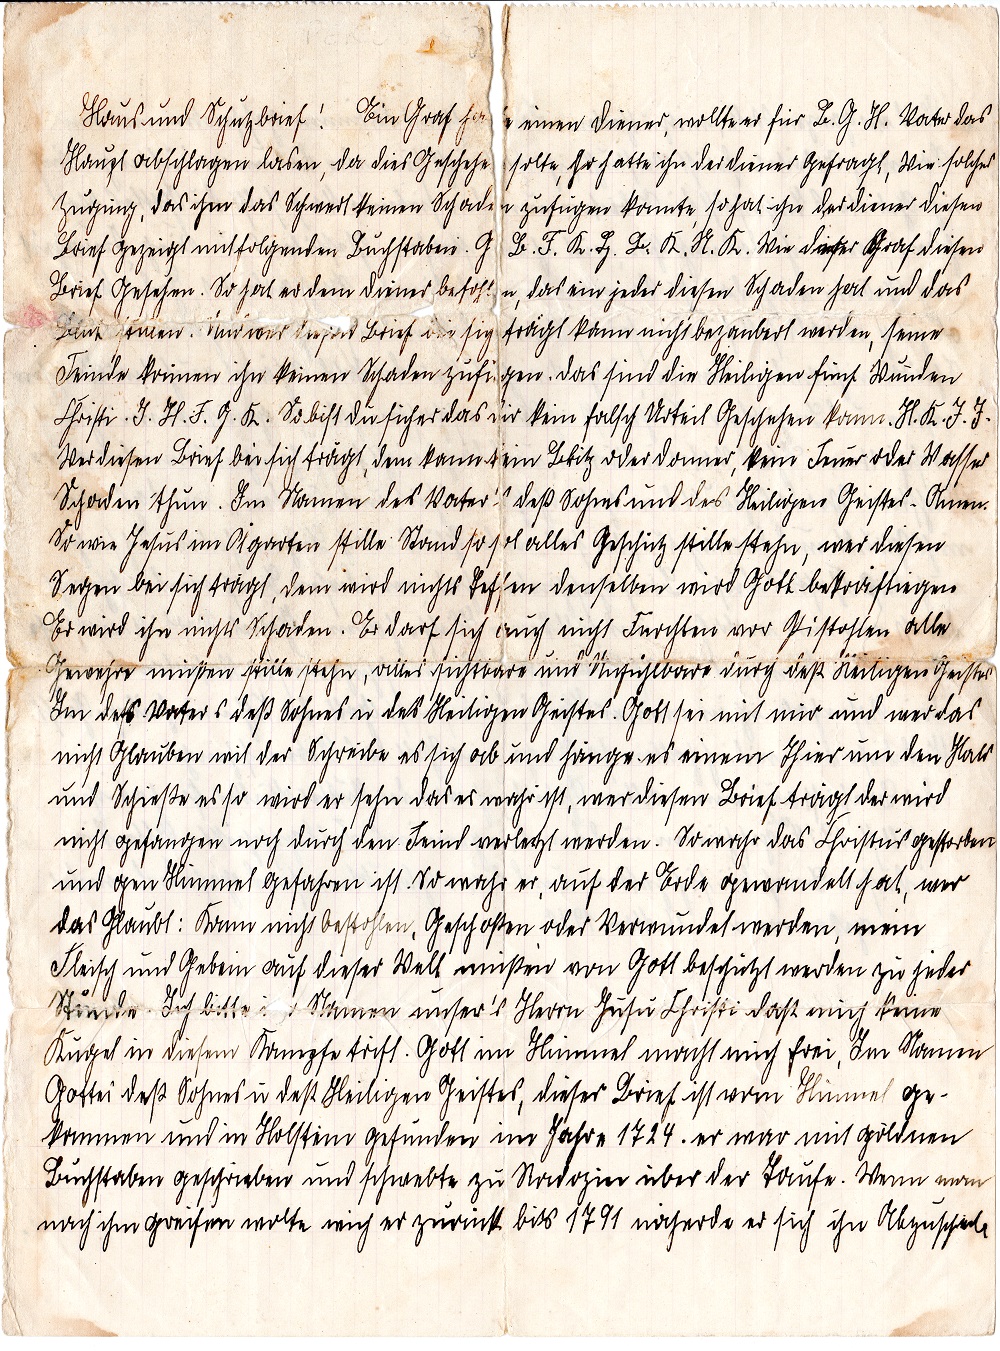 Haus und Schutzbrief! Ein Graf hatte einen Diener, wollte er für B. G. H. Vater das
Haupt abschlagen lasen, da dies Geschehen solte, Er hatte ihn der diener Gefragt, Wie solches
Zuging, das ihm das Schwert keinen Schaden zufügen konnte, so hat ihn der diener diesen
Brief gezeigt mit folgenden Buchstaben. G B. F. K. H. B. K. N. K. Wie dieser Graf diesen
Brief Gesehen. So hat er dem diener befohlen, das ein jeder diesen Schaden hat und das
Blut Und wer diesen Brief bei sich trägt kann nicht bezaubert werden, seine
Feinde können ihn keinen Schaden zufügen. das sind die Heiligen fünf Wunden
Christi. J. H. F. G. K. So bist du sicher das dir kein falsch Urteil Geschehen kann. H. K. J. J.
Wer diesen Brief bei sich trägt, dem kann kein Blitz oder donner, kein Feuer oder Wasser
Schaden thun. Im Namen des Vater's deß Sohnes und des Heiligen Geistes. Amen.
So wie Jesus im Ölgarten stille Stand so sol alles Geschütz stille stehn, wer diesen
Segen bei sich trägt, dem wird nichts treffen denselben wird Gott bekräftiegen
Er wird ihn nichts Schaden. Er darf sich auch nicht Fürchten vor Pistohlen alle
Gewehre müßen stille stehn, alles sichtbare und Unsichlbare durch deß Heiligen Geistes
Im des Vaters deß Sohnes u des Heiligen Geistes. Gott sei mit mir und wer das
nicht Glauben wil der Schreibe es sich ab und hänge es einem Thier um den Hals
und Schieße es so wird er sehn das es wahr ist, wer diesen Brief trägt der wird
nicht gefangen noch durch den Feind verletzt werden. So wahr das Christus gestorben
und gen Himmel gefahren ist. So wahr er, auf der Erde gewandelt hat, wer
das Glaubt: Kann nicht bestohlen, Geschoßen oder Verwundet werden, mein
Fleisch und Gebein auf dieser Welt müßen von Gott beschützt werden zu jeder
Stunde. Ich bitte Namen unser's Herrn Jusu Christi daß mich keine
Kugel in diesem Kampfe trift. Gott im Himmel macht mich frei, Im Namen
Gottes deß Sohnes u deß Heiligen Geistes, dieser Brief ist vom Himmel ge-
kommen und in Holstein gefunden im Jahre 1724. er war mit göldnen
Buchstaben geschrieben und schwebte zu über der Taufe. Wenn man
nach ihm greifen wolte wich er zurück bits 1791 näherde er sich ihn